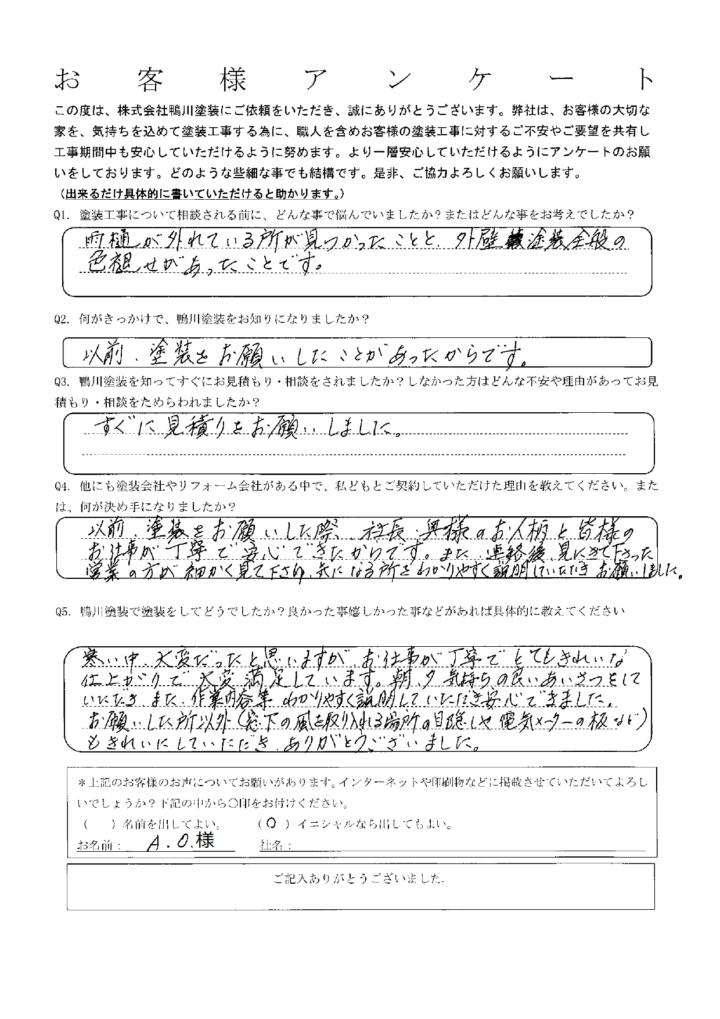 お客様アンケート
この度は、株式会社鴨川塗装にご依頼をいただき、誠にありがとうございます。弊社は、お客様の大切な
家を、気持ちを込めて塗装工事する為に、職人を含めお客様の塗装工事に対するご不安やご要望を共有し
工事期間中も安心していただけるように努めます。より一層安心していただけるようにアンケートのお願
いをしております。どのような些細な事でも結構です。是非、ご協力よろしくお願いします。
（出来るだけ具体的に書いていただけると助かります。）
Q1. 塗装工事について相談される前に、どんな事で悩んでいましたか？またはどんな事をお考えでしたか？
雨樋が外れている所が見つかったことと、外壁塗装全般の
色褪せがあったことです。
Q2. 何がきっかけで、鴨川塗装をお知りになりましたか？
以前、塗装をお願いしたことがあったからです。
Q3. 鴨川塗装を知ってすぐにお見積もり・相談をされましたか？しなかった方はどんな不安や理由があってお見
積もり・相談をためらわれましたか？
すぐに見積りをお願いしました。
Q4. 他にも塗装会社やリフォーム会社がある中で、私どもとご契約していただけた理由を教えてください。また
は、何が決め手になりましたか？
以前、塗装をお願いした際、社長・奥様のお人柄と皆様の
お仕事が丁寧で安心できたからです。また、連絡後、見にきて下さった
営業の方が細かく見て下さり、気になる所をわかりやすく説明していただきお願いしました。
Q5. 鴨川塗装で塗装をしてどうでしたか？良かった事嬉しかった事などがあれば具体的に教えてください
寒い中、大変だったと思いますが、お仕事が丁寧でとてもきれいな
仕上がりで大変満足しています。朝、夕 気持ちの良いあいさつをして
いただき、また、作業内容等 わかりやすく説明していただき安心できました。
お願いした所以外（窓下の風を取り入れる場所の目隠しや電気メーターの板など）
もきれいにしていただき、ありがとうございました。
＊上記のお客様のお声についてお願いがあります。インターネットや印刷物などに掲載させていただいてよろし
いでしょうか？下記の中から○印をお付けください。
（　）名前を出してよい。　（○）イニシャルなら出してもよい。
お名前： A.O.様　社名：
ご記入ありがとうございました.